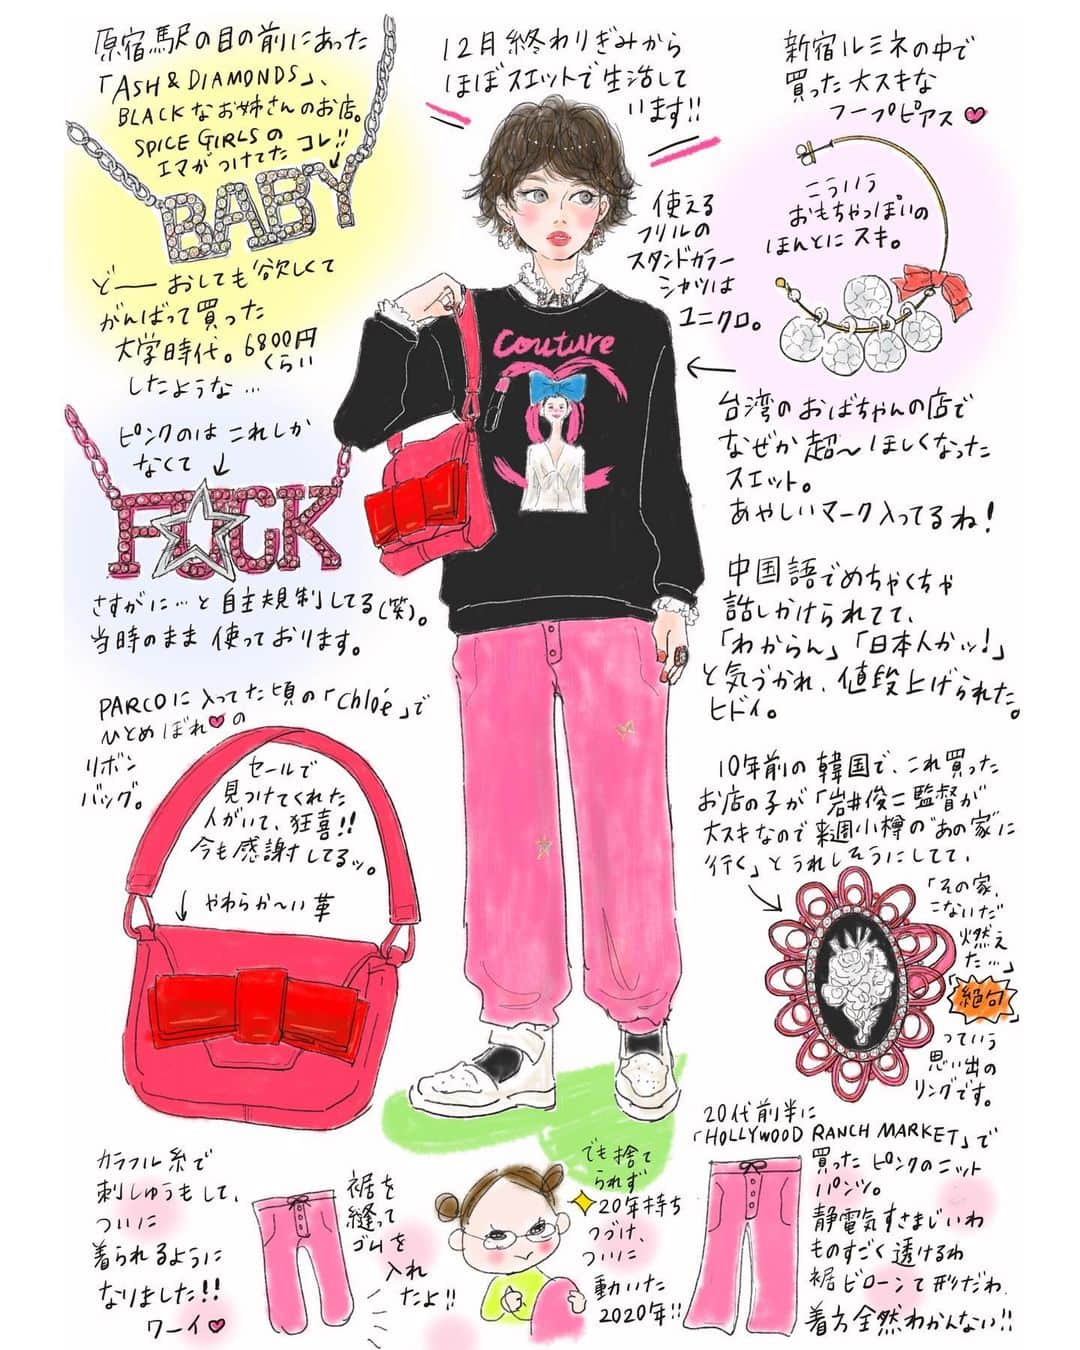 原宿駅の目の前にあった
「ASH & DIAMONDS」、
BLACKなお姉さんのお店。
SPICE GIRLSの
エマがつけてた コレ!!
BABY
どーおしても欲しくて
がんばって買った
大学時代。6800円
くらい
したような…
ピンクのは これしか
なくて
FUCK
さすがに…と自主規制してる(笑)。
当時のまま 使っております。
12月終わりぎみから
ほぼスエットで生活して
います!!
使える
フリルの
スタンドカラー
シャツは
ユニクロ。
Couture
新宿ルミネの中で
買った大スキな
フープピアス
こういう
おもちゃっぽいの
ほんとにスキ。
台湾のおばちゃんの店で
なぜか超〜ほしくなった
スエット。
あやしいマーク入ってるね!
中国語でめちゃくちゃ
話しかけられてて、
「わからん」「日本人かッ!」
と気づかれ、値段上げられた。
ヒドイ。
PARCOに入ってた頃の「Chloé」で
ひとめぼれの
リボン
バッグ。
セールで
見つけてくれた
人がいて、狂喜!!
今も感謝してるッ。
やわらか〜い革
10年前の韓国で、これ買った
お店の子が「岩井俊二監督が
大スキなので来週小樽の"あの家"に
行く」とうれしそうにしてて、
「その家、
こないだ
燃え
た…」
絶句
っていう
思い出の
リングです。
20代前半に
「HOLLYWOOD RANCH MARKET」で
買ったピンクのニット
パンツ。
静電気すさまじいわ
ものすごく透けるわ
裾ビローンて形だわ
着方全然わかんない!!
でも捨て
られず
20年持ち
つづけ、
ついに
動いた
2020年!!
裾を
縫って
ゴムを
入れ
たよ!!
カラフル糸で
刺しゅうもして、
ついに
着られるように
なりました!!
ワーイ